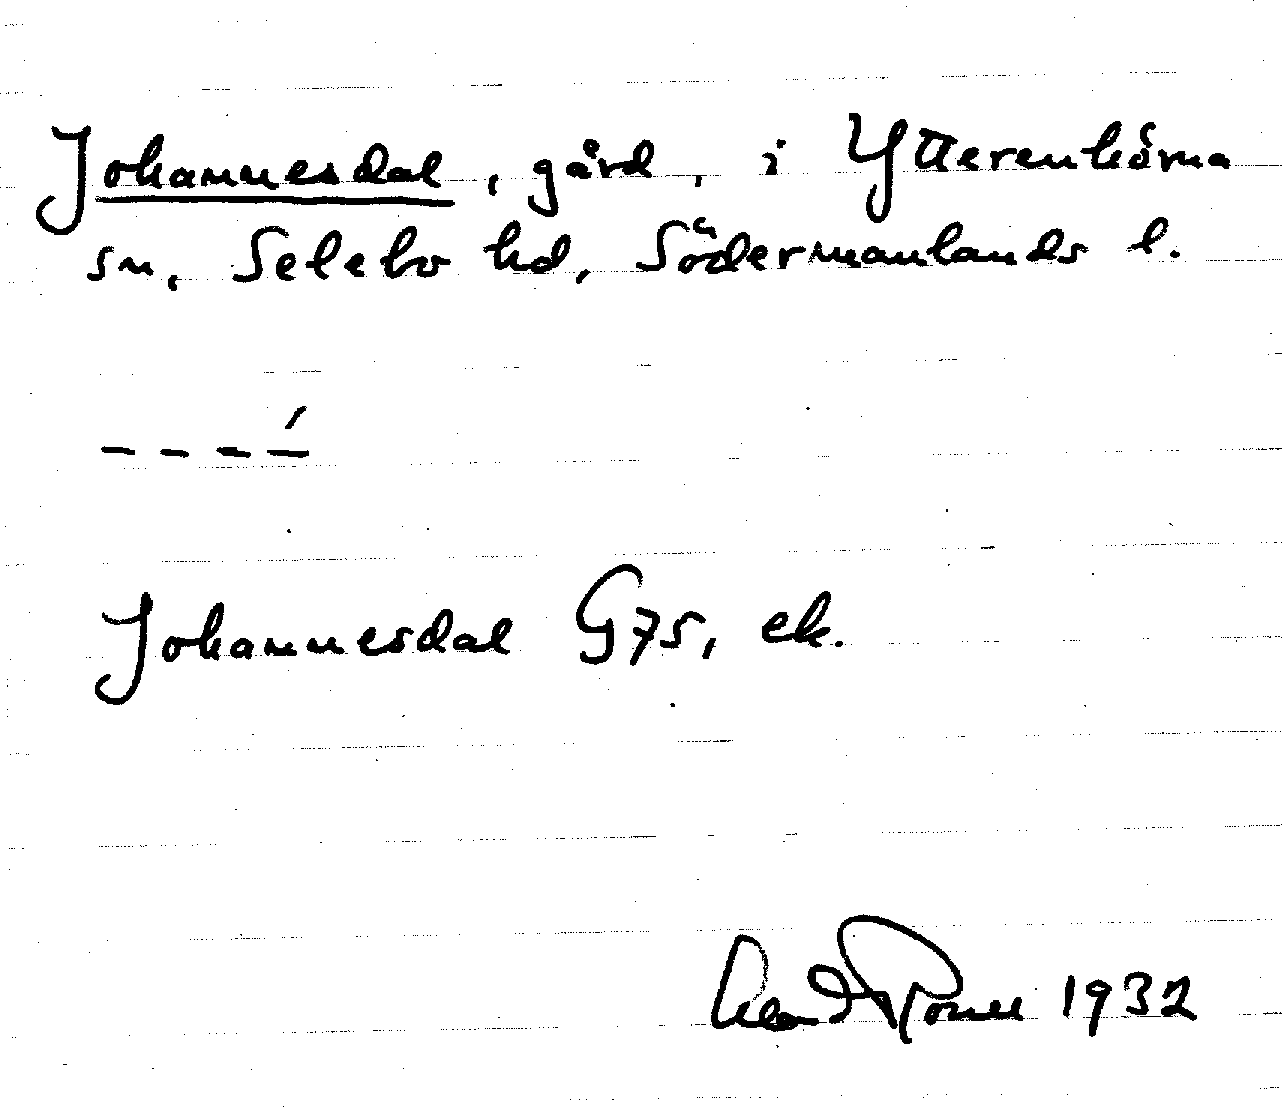 Johannesdal, gård, i Ytterenhörna
sn, Selebo hd, Södermanlands l.
– – – –́
Johannesdal G75, ek.
1932